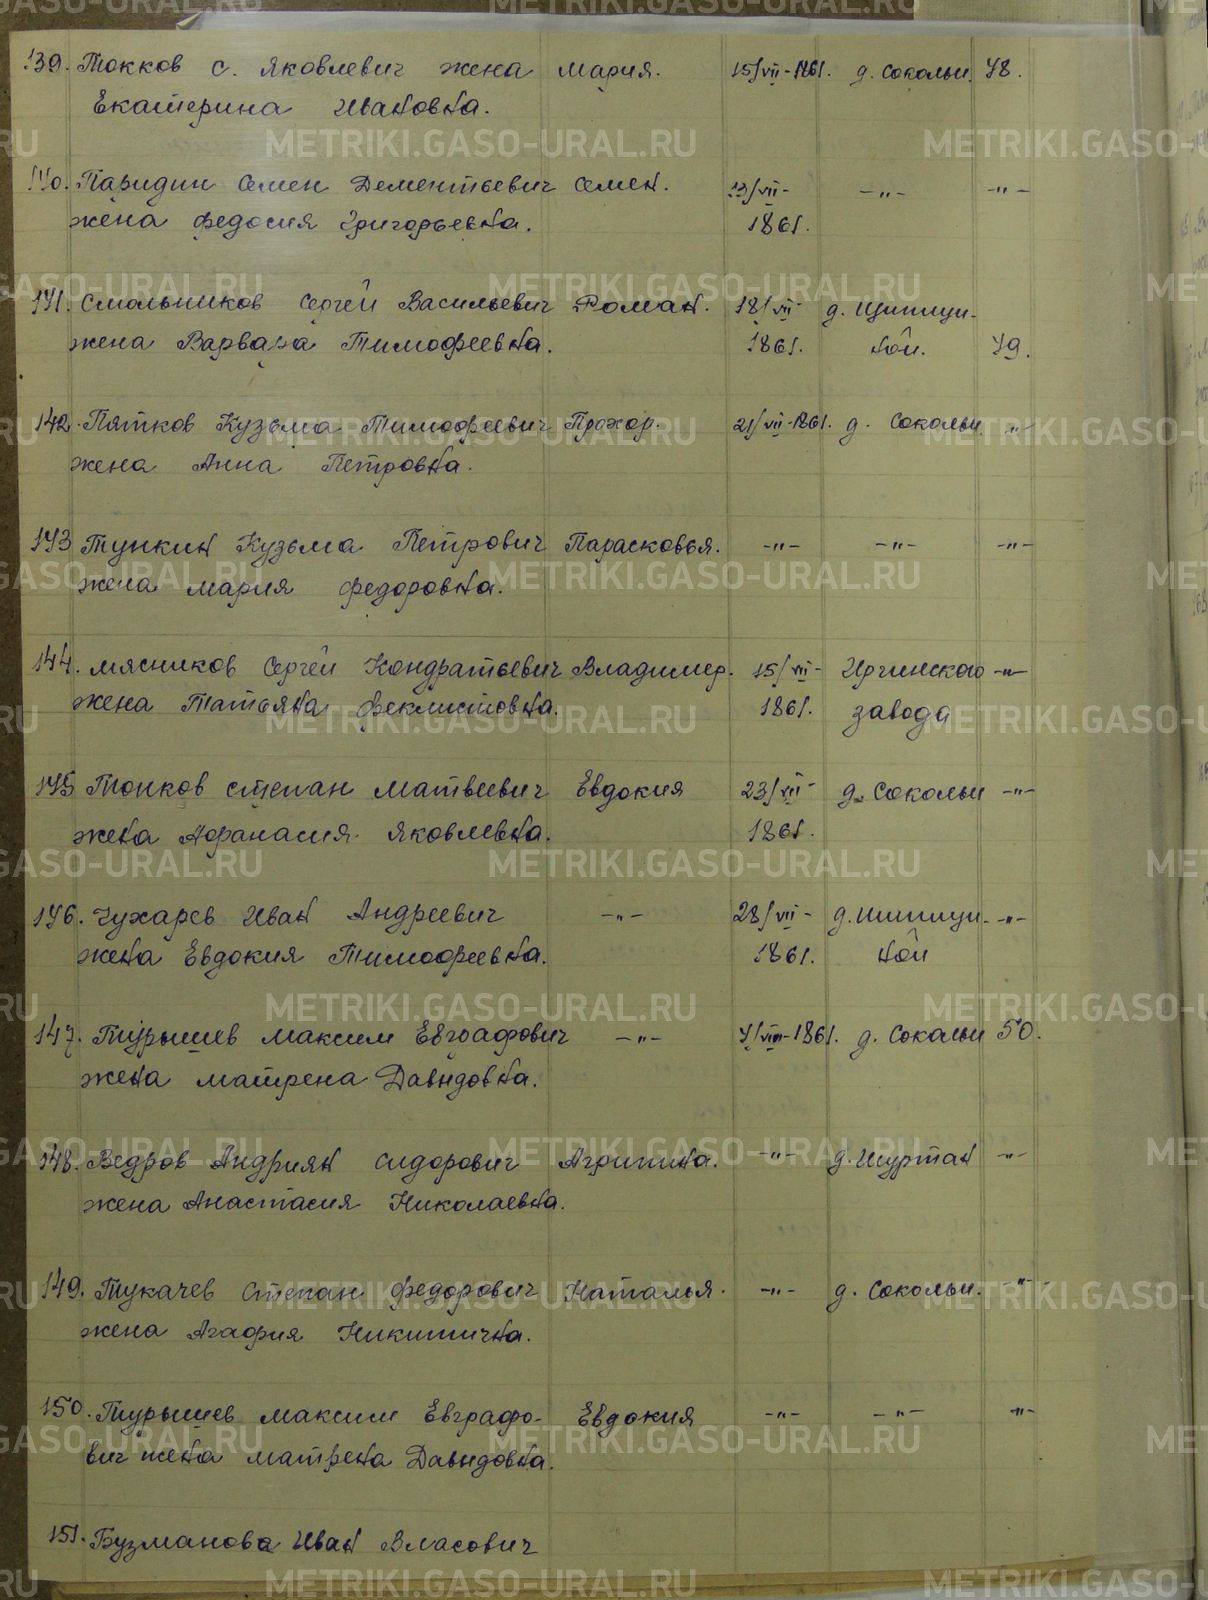 139. Токков С. Яковлевич жена Мария. 15/VII-1861. д. Сокольи 48.
Екатерина Ивановна.
140. Паридин Семен Дементьевич Семен. 13/VII- -"- -"-
жена Федосия Григорьевна. 1861.
141. Смольников Сергей Васильевич Роман. 18/VII д. Щипици-
жена Варвара Тимофеевна. 1861. ной. 49.
142. Пятков Кузьма Тимофеевич Прохор. 21/VII-1861. д. Сокольи -"-
жена Анна Петровна.
143 Тункин Кузьма Петрович Парасковья. -"- -"- -"-
жена Мария Федоровна.
144. Мясников Сергей Кондратьевич Владимер. 15/VII- Иргинского -"-
жена Татьяна Феклистовна. 1861. завода
145 Топков Степан Матвеевич Евдокия 23/VII- д. Сокольи -"-
жена Афанасия Яковлевна. 1861.
146. Чухарев Иван Андреевич -"- 28/VII- д. Шипици- -"-
жена Евдокия Тимофеевна. 1861. ной
147. Турышев Максим Евграфович -"- 4/VIII-1861. д. Сокольи 50.
жена Матрена Давыдовна.
148. Ведров Андриян Сидорович Агрипина. -"- д. Шуртан -"-
жена Анастасия Николаевна.
149. Тукачев Степан Федорович Наталья. -"- д. Сокольи. -"-
жена Агафия Никитична.
150. Турышев Максим Евграфо- Евдокия -"- -"- -"-
вич жена Матрена Давыдовна.
151. Бузманова Иван Власович
METRIKI.GASO-URAL.RU